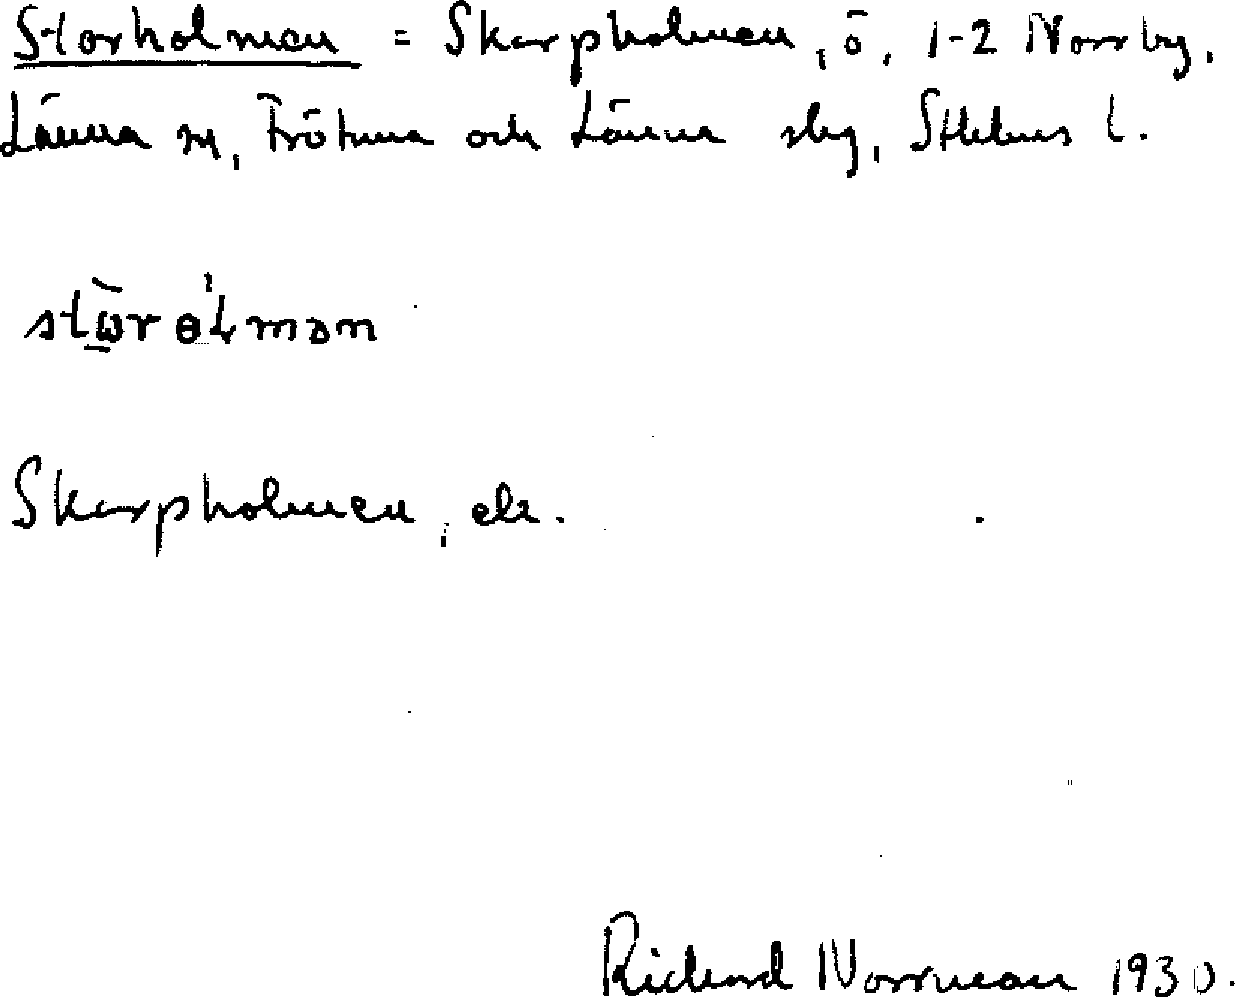 Storholmen = Skarpholmen, ö, 1-2 Norrby,
Länna sn, Frötuna och Länna slg, Sthlms l.
stὼrɵ́lmən
Skarpholmen, ek.
Rickard Norrman 1930.